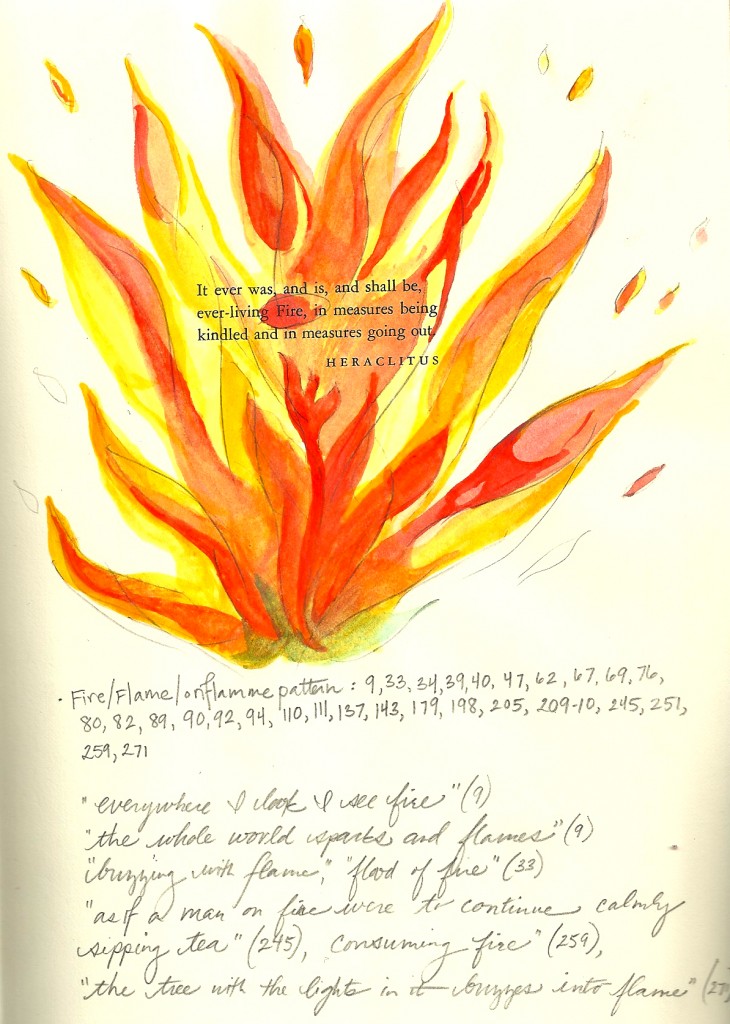 It ever was, and is, and shall be,
ever-living Fire, in measures being
kindled and in measures going out.
HERACLITUS
· Fire/Flame/oriflamme pattern : 9, 33, 34, 39, 40, 47, 62, 67, 69, 76,
80, 82, 89, 90, 92, 94, 110, 111, 137, 143, 179, 198, 205, 209-10, 245, 251,
259, 271
"everywhere I look I see fire" (9)
"the whole world sparks and flames" (9)
"buzzing with flame", "flood of fire" (33)
"as if a man on fire were to continue calmly
sipping tea" (245), consuming fire" (259),
"the tree with the lights in it buzzes into flame" (27